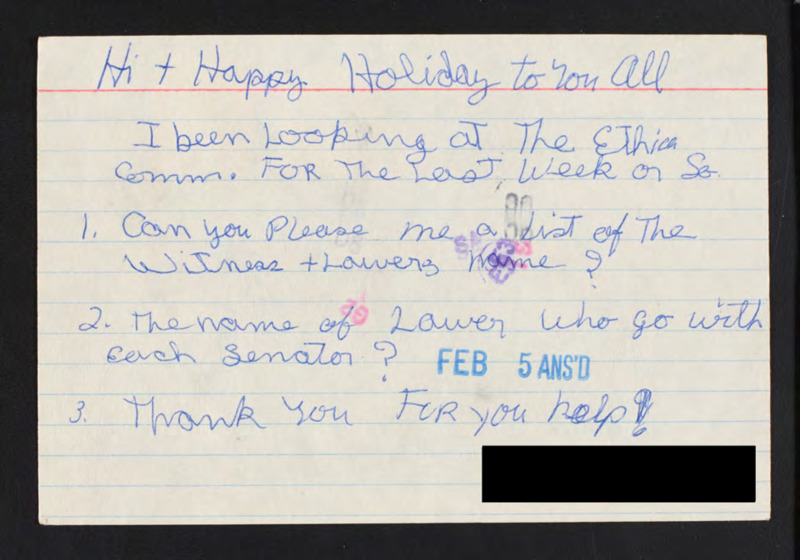 Hi + Happy Holiday to You All
I been Looking at The Ethica
Comm. FOR The Last Week or So.
1. Can you Please me a List of The
Witness + Lawers name ?
2. The name of Lawer who go with
each Senator ?
FEB 5 ANS'D
3. Thank You FOR you help!